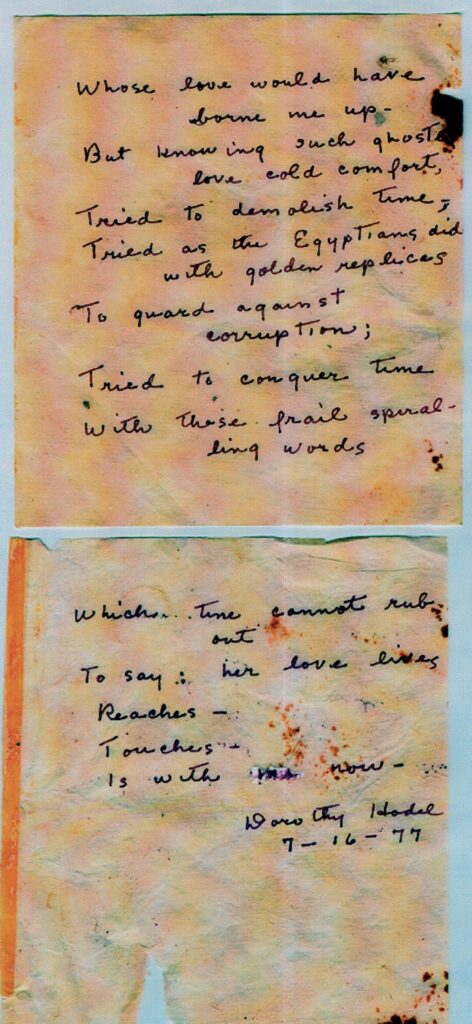 Whose love would have
borne me up -
But knowing such ghosts
love cold comfort,
Tried to demolish time,
Tried as the Egyptians did
with golden replicas
To guard against
corruption;
Tried to conquer time
With these frail spiral-
ling words
Which... time cannot rub
out
To say: her love lives
Reaches -
Touches -
Is with me now -
Dorothy Hodel
7-16-77